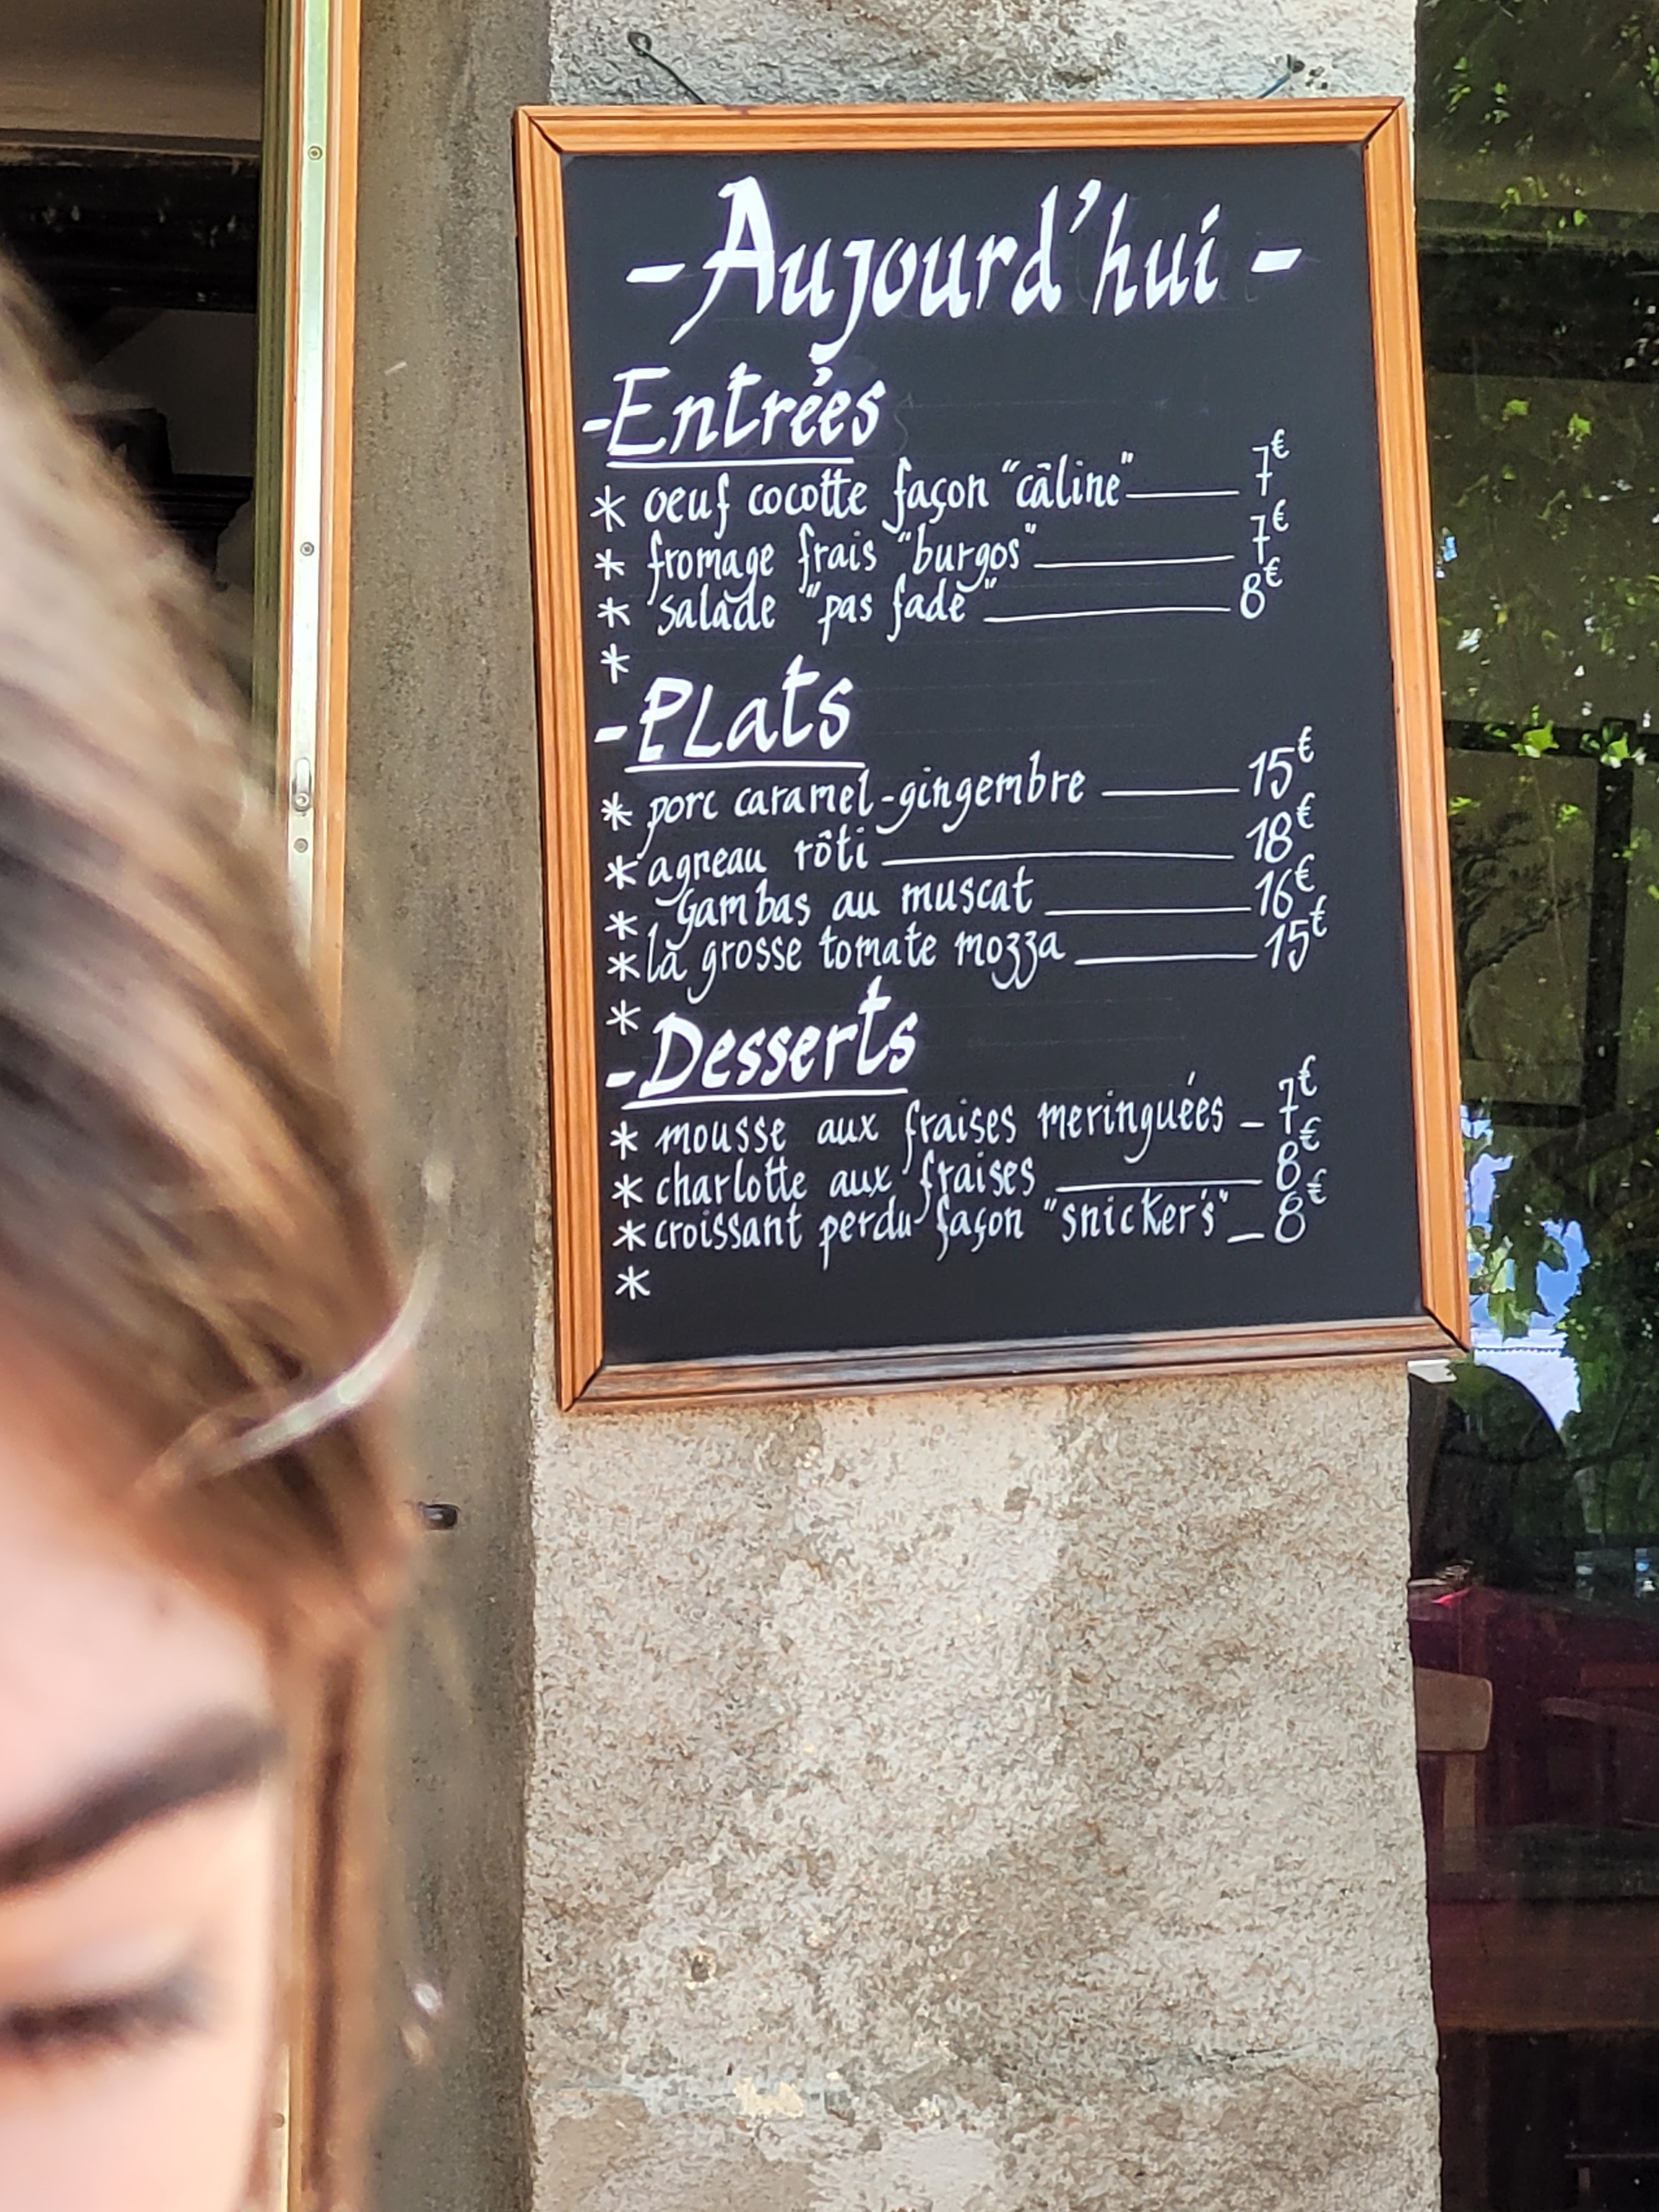 - Aujourd'hui -
- Entrées
* oeuf cocotte façon "câline" 7€
* fromage frais "burgos" 7€
* salade "pas fade" 8€
*
- Plats
* porc caramel-gingembre 15€
* agneau rôti 18€
* gambas au muscat 16€
* la grosse tomate mozza 15€
*
- Desserts
* mousse aux fraises meringuées 7€
* charlotte aux fraises 8€
* croissant perdu façon "snicker's" 8€
*